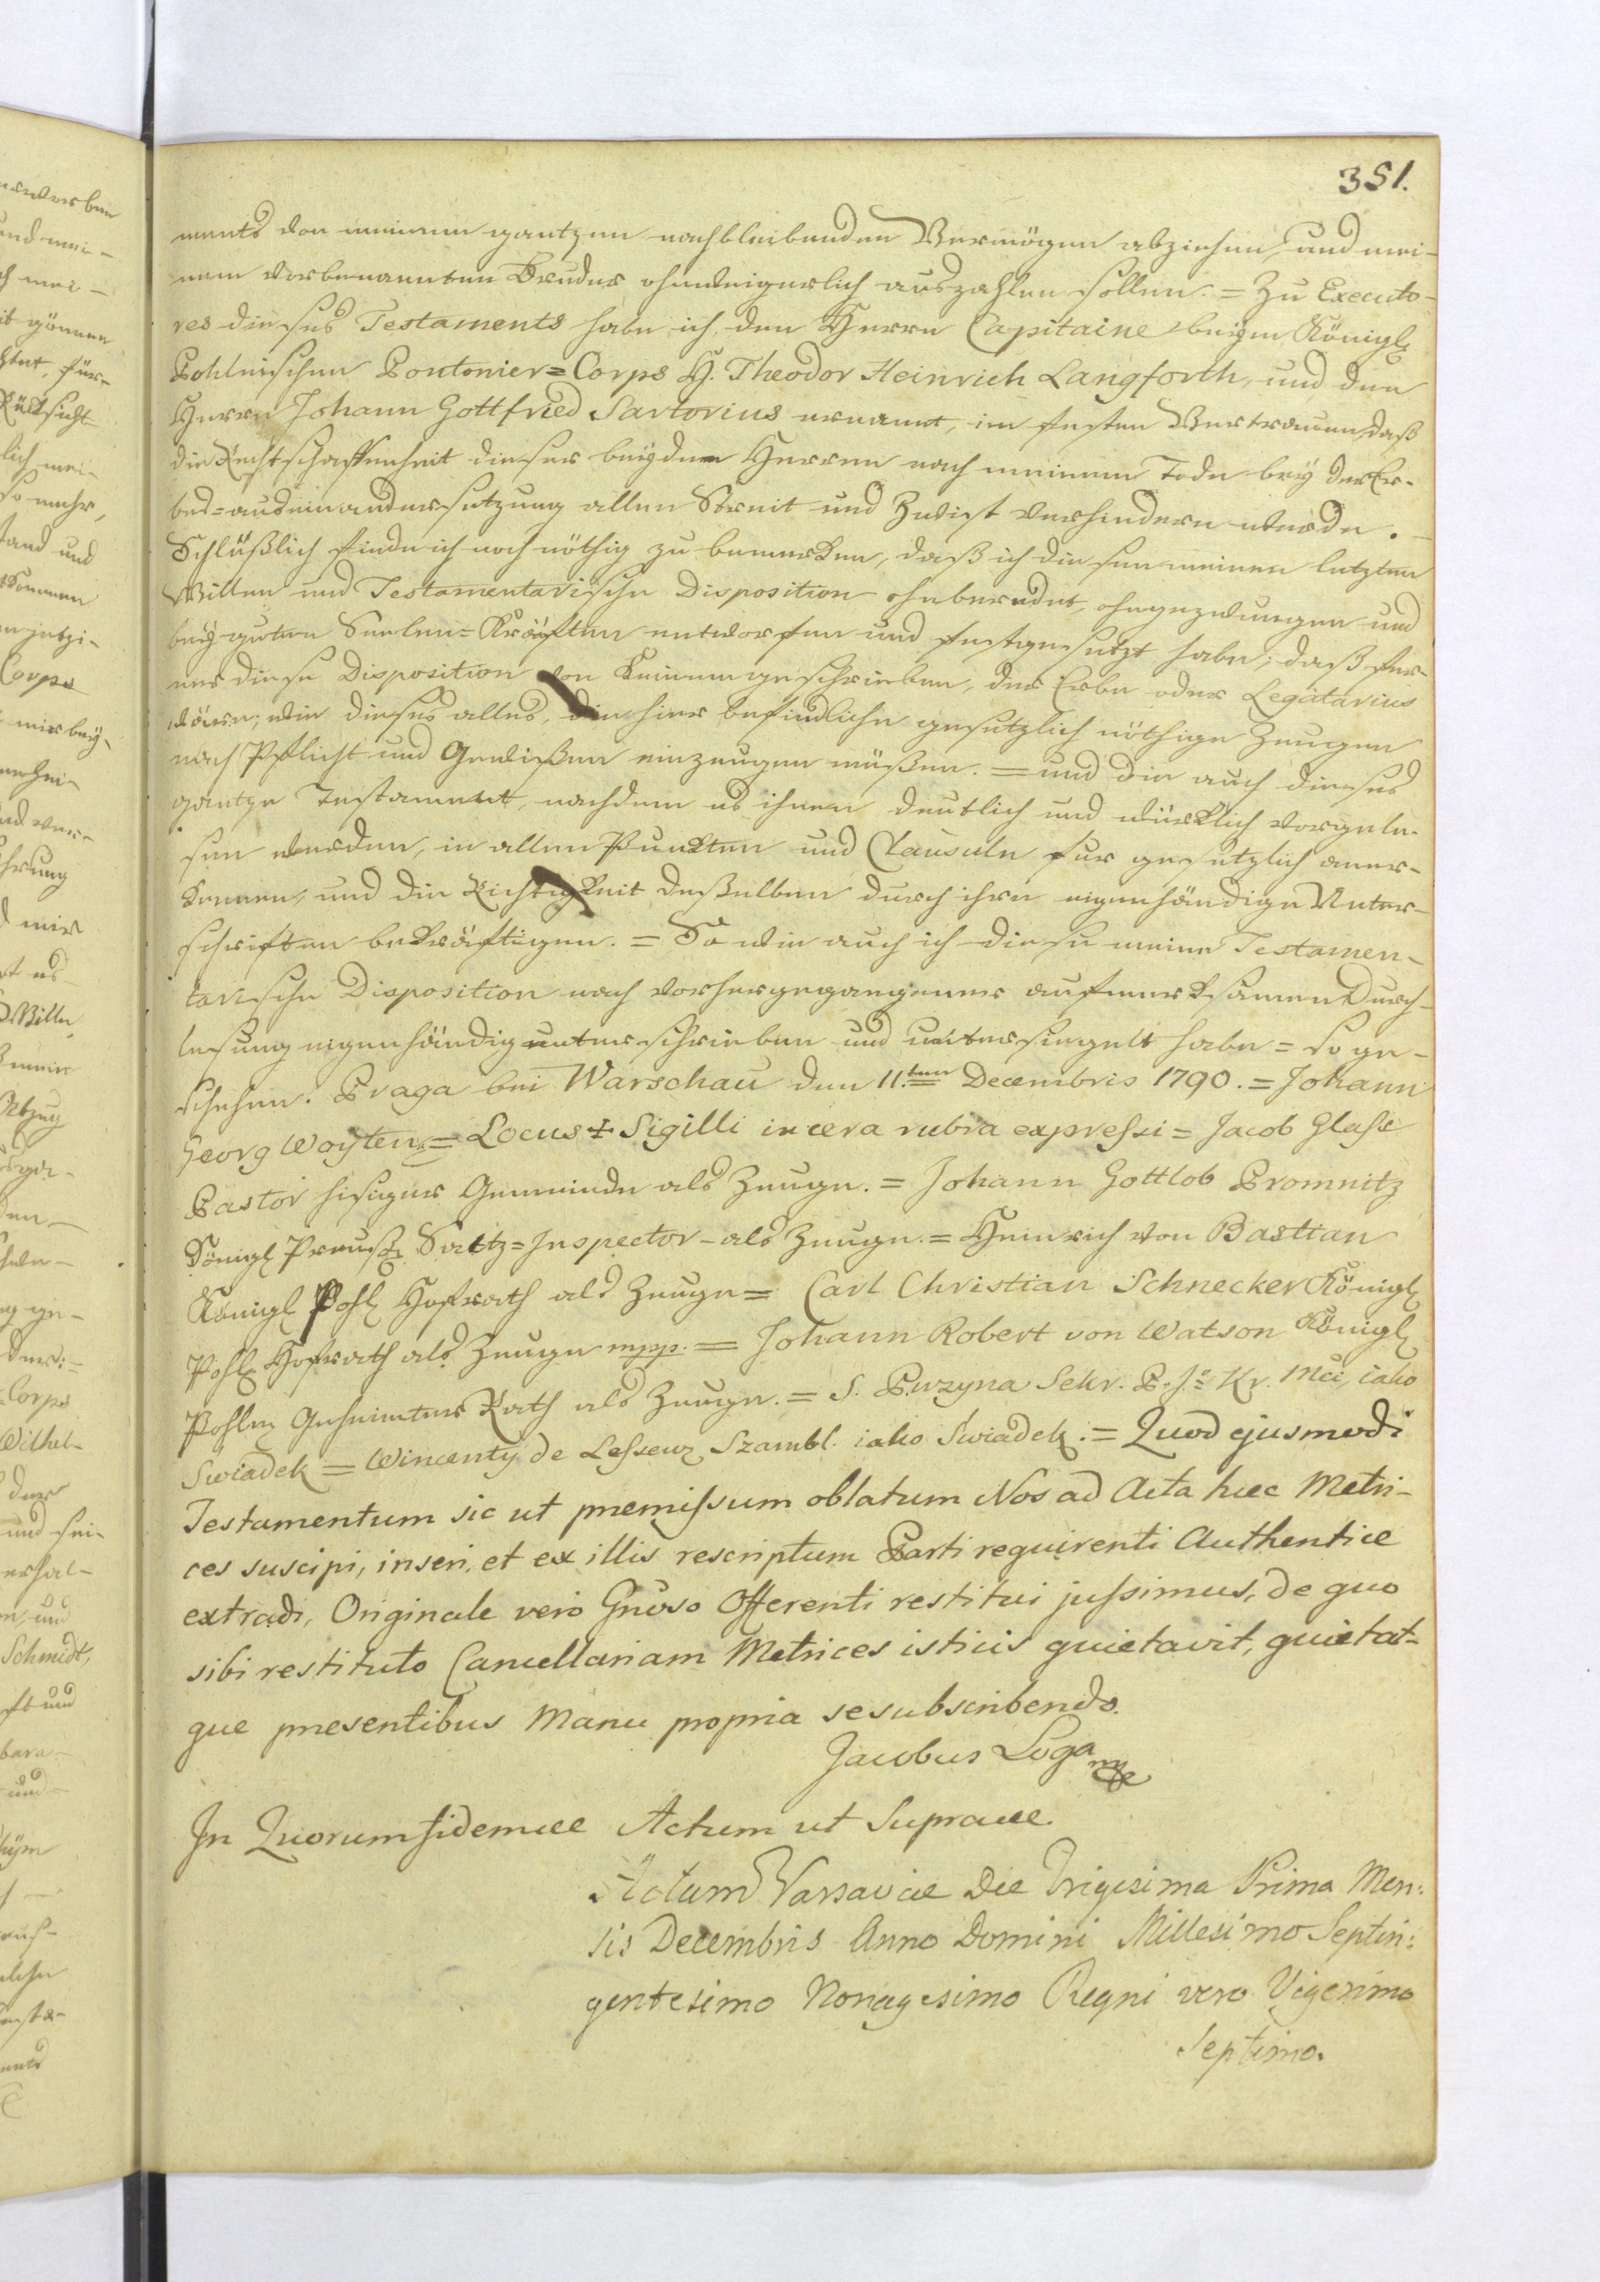 351.
ments von meinem gantzen nachbleibenden Vermögen abziehen, und mei-
nem vorbenannten Bruder ohnweigerlich auszahlen sollen. = Zu Executo-
res dieses Testaments habe ich den Herrn Capitaine beÿm Königl
Pohlnischen Pontonier=Corps H. Theodor Heinrich Langforth, und den
Herrn Johann Gottfried Sartorius ernannt, im festen Vertrauen, daß
die Rechtschaffenheit dieser beÿden Herren nach meinem Tode beÿ der Er-
bes=auseinandersetzung allen Streit und Zwist verhindern werde.
Schlüßlich finde ich noch nöthig zu bemerken, daß ich diesen meinen letzten
Willen und Testamentarische Disposition ohnberedet, ohngezwungen und
beÿ guten Seelen=Kräften entworfen und festgesetzt habe; daß fer-
ner diese Disposition von keinem geschrieben, der Erbe oder Legatarius
wäre; wie dieses alles, die hier befindliche gesetzlich nöthige Zeugen
nach Pflicht und Gewißen einzeugen müßen. = und die auch dieses
gantze Testament, nachdem es ihnen deutlich und würklich vorgele-
sen worden, in allen Punkten und Clausuln fur gesetzlich aner-
kennen, und die Richtigkeit deßelben durch ihre eigenhändige Unter-
schriften bekräftigen. = So wie auch ich diese meine Testamen-
tarische Disposition nach vorhergegangener aufmerksamen Durch-
lesung eigenhändig unterschrieben und untersiegelt habe = so ge-
schehen. Praga bei Warschau den 11.ten Decembris 1790. = Johann
Georg Woyten = Locus + Sigilli in cera rubra expressi = Jacob Glase
Pastor hiesiger Gemeinde als Zeuge. = Johann Gottlob Promnitz
Königl Preuß Saltz=Inspector - als Zeuge. = Heinrich von Bastian
Königl Pohl Hofrath als Zeuge = Carl Christian Schnecker Königl
Pohl Hofrath als Zeuge mpp. = Johann Robert von Watson Königl
Pohln Geheimter Rath als Zeuge. = S. Puzyna Sekr. P. J: Kr. Mci, iako
Swiadek = Wincenty de Lesseur Szambl. iako Swiadek. = Quod ejusmodi
Testamentum sic ut premissum oblatum Nos ad Acta hæc Metri-
ces suscipi, inseri, et ex illis rescriptum Parti requirenti Authentice
extradi, Originale vero Gnoso Offerenti restitui jussimus, de quo
sibi restituto Cancellariam Metrices isticis quietavit, quietat-
que presentibus Manu propria se subscribendo.
Jacobus Loga
In Quorum fidem Actum ut Supra
Actum Varsaviæ Die Trigesima Prima Men:
sis Decembris Anno Domini Millesimo Septin:
gentesimo Nonagesimo Regni vero Vigesimo
Septimo.